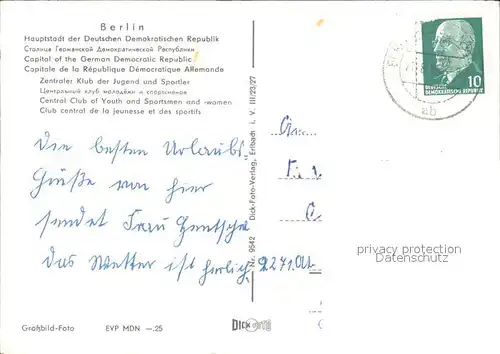 Berlin
Hauptstadt der Deutschen Demokratischen Republik
Столица Германской Демократической Республики
Capital of the German Democratic Republic
Capitale de la République Démocratique Allemande
Zentraler Klub der Jugend und Sportler
Центральный клуб молодёжи и спортсменов
Central Club of Youth and Sportsmen and -women
Club central de la jeunesse et des sportifs
Die besten Urlaubs-
grüße von hier
sendet Frau
das Wetter ist herlich.
Großbild-Foto EVP MDN —.25
Nr. 9542 Dick-Foto-Verlag, Erlbach i. V. III/23/27
DICK FOTO
An
2271
10
DEUTSCHE
DEMOKRATISCHE REPUBLIK
ab
privacy protection
VERSANDHANDEL